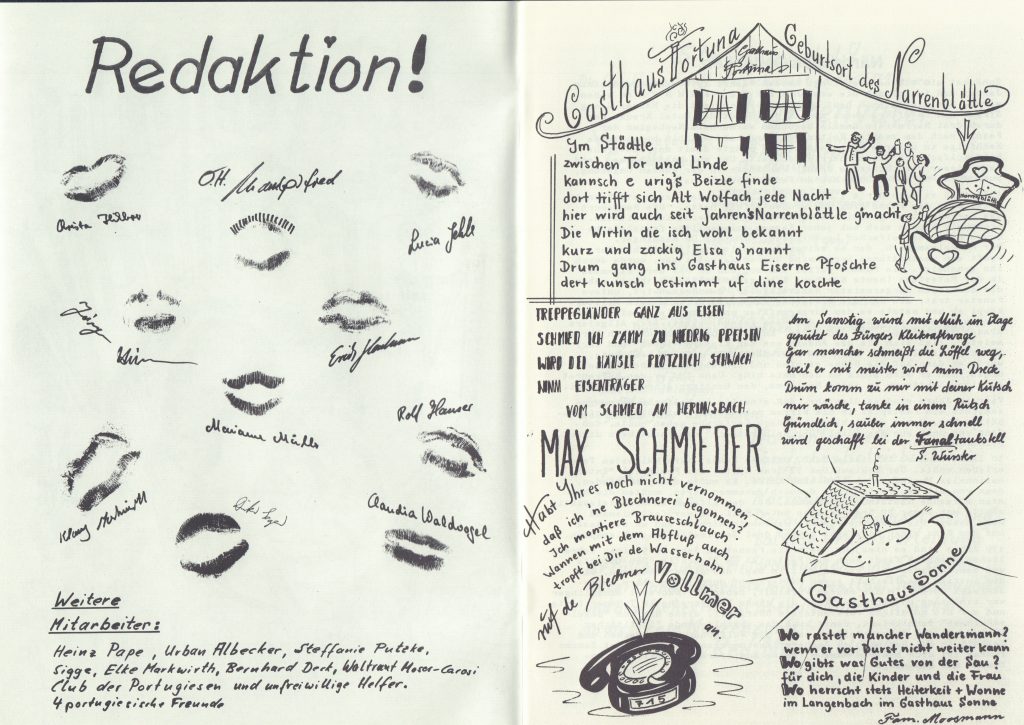 Redaktion!
Anita
O.H. Manfred
Lucia Jehle
Jürg
Erich
Rolf Hauser
Marianne
Klaus
Claudia Waldvogel
Weitere
Mitarbeiter:
Heinz Pape, Urban Albecker, Steffanie Puteke,
Sigge, Elke Markwirth, Bernhard Dert, Waltraut Moser-Carosi
Club der Portugiesen und unfreiwillige Helfer.
4 portugiesische Freunde
Gasthaus Fortuna Geburtsort des Narrenblättle
Gasthaus
Fortuna
Narrenblättle
Ym Städtle
zwischen Tor und Linde
kannsch e urig's Beizle finde
dort trifft sich Alt Wolfach jede Nacht
hier wird auch seit Jahren's Narrenblättle g'macht
Die Wirtin die isch wohl bekannt
kurz und zackig Elsa g'nannt
Drum gang ins Gasthaus Eiserne Pfoschte
dert kunsch bestimmt uf dine koschte
TREPPEGLÄNDER GANZ AUS EISEN
SCHMIED ICH ZAMM ZU NIEDRIG PREISEN
WIRD DEI HÄNSLE PLÖTZLICH SCHWACH
NIMM EISENTRÄGER
VOM SCHMIED AM HERLINSBACH.
MAX SCHMIEDER
Am Samstig würd mit Müh un Plage
geputzt des Bürgers Kleikraftwage
Gar mancher schmeißt die Löffel weg,
weil er nit meister wird mim Dreck
Drum komm zu mir mit deiner Kutsch
mir wäsche, tanke in einem Rutsch
Gründlich, sauber immer schnell
wird geschafft bei der Fanal tankstell
S. Wurster
Habt Yhr es noch nicht vernommen,
daß ich 'ne Blechnerei begonnen?
Ich montiere Brauseschlauch
Wannen mit dem Abfluß auch
tropft bei Dir de Wasserhahn
ruf de Blechner Vollmer an.
715
Gasthaus Sonne
Wo rastet mancher Wandersmann?
wenn er vor Durst nicht weiter kann
Wo gibts was Gutes von der Sau?
für dich, die Kinder und die Frau
Wo herrscht stets Heiterkeit + Wonne
im Langenbach im Gasthaus Sonne
Fam. Moosmann